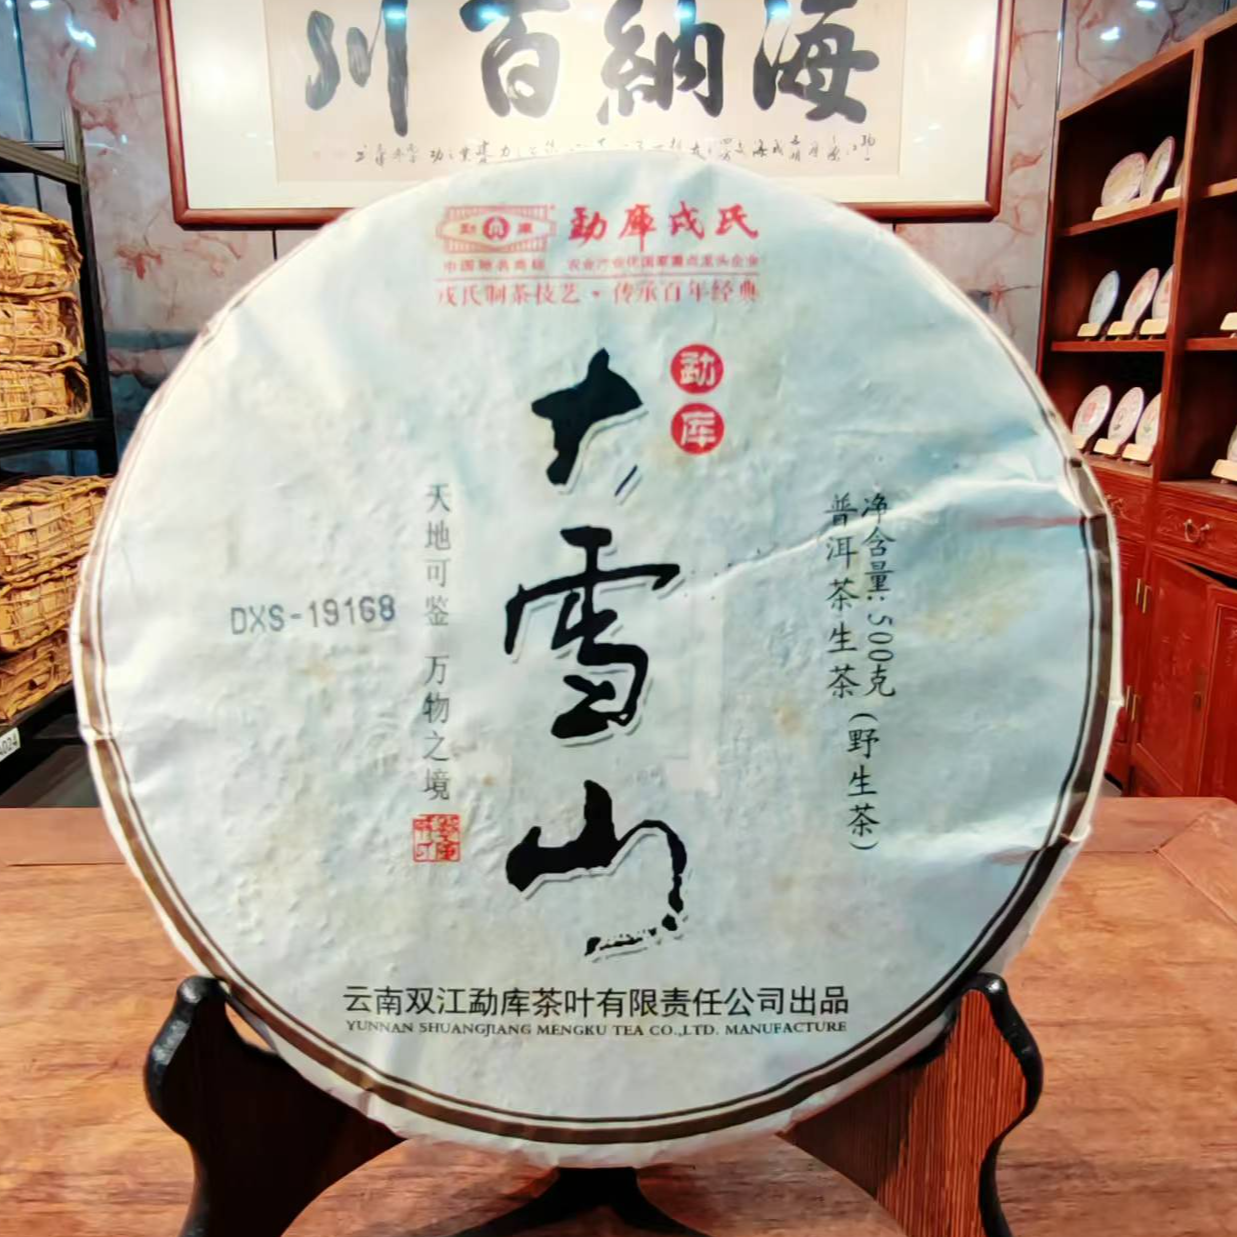 海納百川
勐庫
勐庫戎氏
中国驰名商标 农业产业化国家重点龙头企业
戎氏制茶技艺·传承百年经典
勐库
大雪山
天地可鉴 万物之境
DXS-19168
净含量:500克
普洱茶生茶
(野生茶)
云南双江勐库茶叶有限责任公司出品
YUNNAN SHUANGJIANG MENGKU TEA CO.,LTD. MANUFACTURE